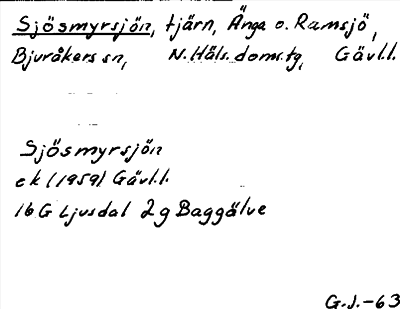 Sjösmyrsjön, tjärn, Änga o. Ramsjö,
Bjuråkers sn, N. Häls. doms.tg, Gävl.l.
Sjösmyrsjön
ek (1959) Gävl.l.
16 G Ljusdal 2 g Baggälve
G.J.-63